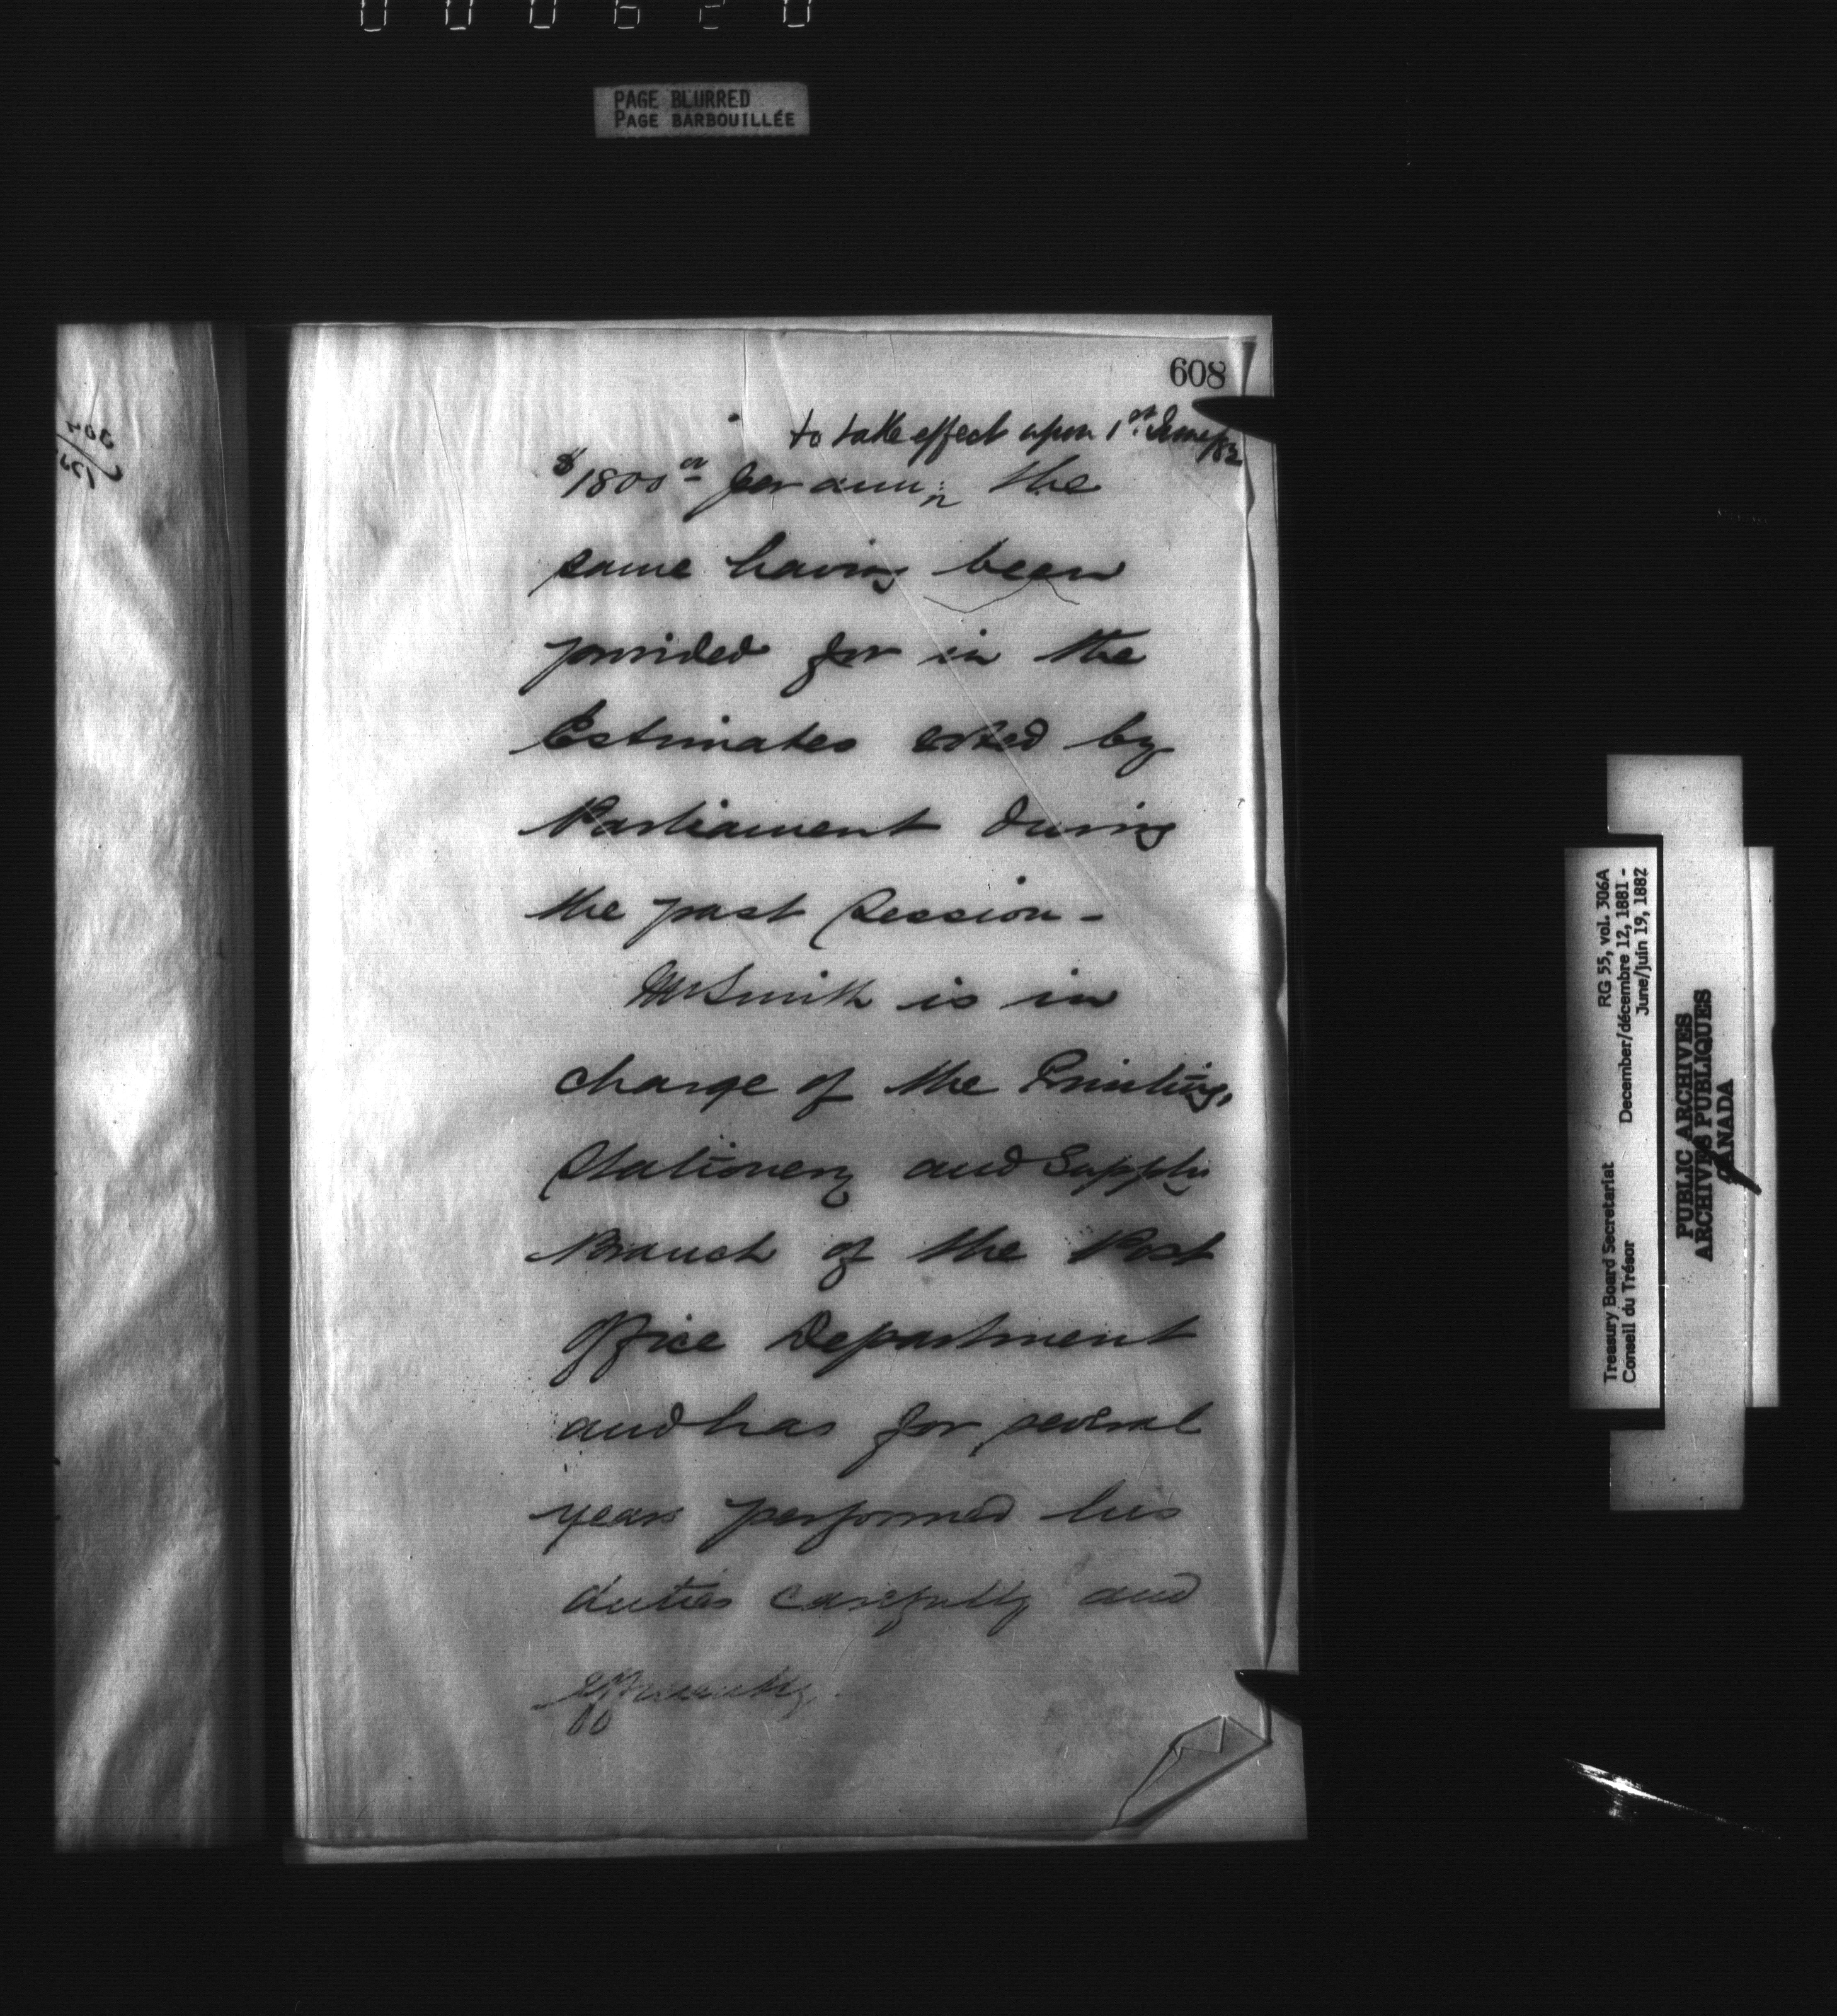 000620
PAGE BLURRED
PAGE BARBOUILLÉE
608
to take effect upon 1st June/82
$1800 00 per ann:m the
same having been
provided for in the
Estimates voted by
Parliament during
the past Session -
Mr Smith is in
charge of the Printing,
Stationery and Supply
Branch of the Post
Office Department
and has for several
years performed his
duties carefully and
efficiently.
RG 55, vol. 306A
Treasury Board Secretariat December/décembre 12, 1881 -
Conseil du Trésor June/juin 19, 1882
PUBLIC ARCHIVES
ARCHIVES PUBLIQUES
CANADA